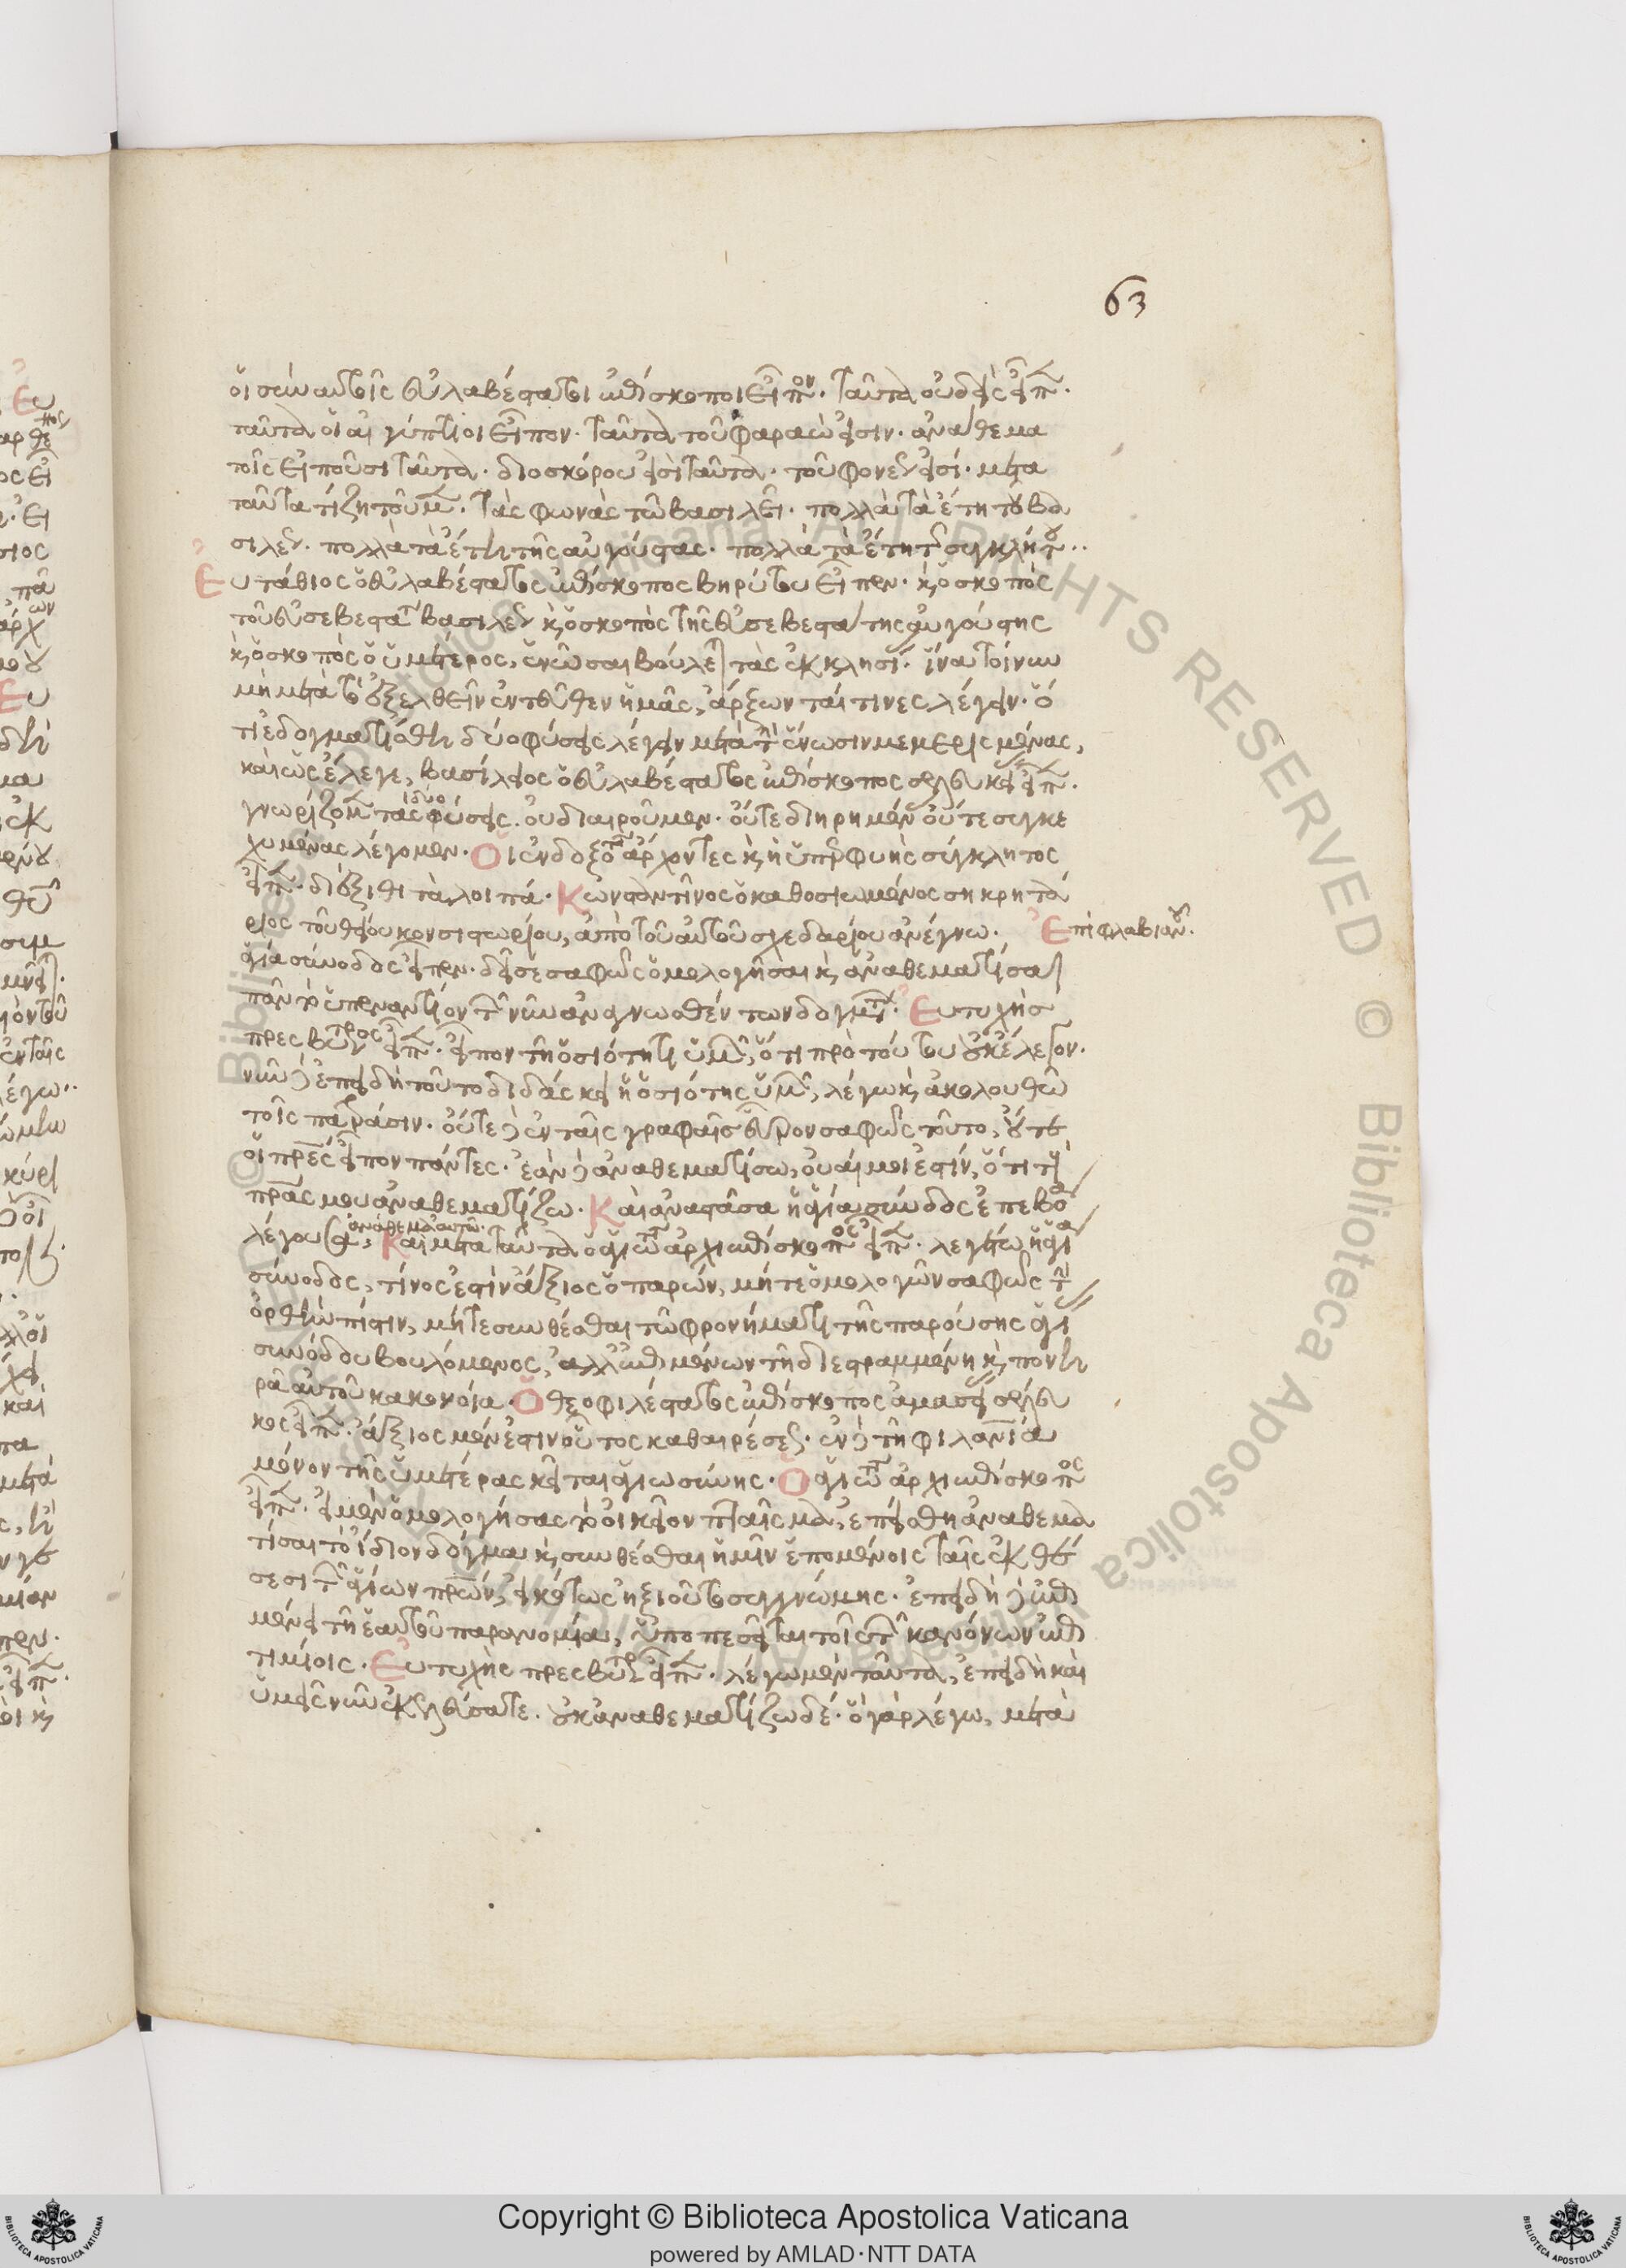 63
οἱ σὺν αὐτοῖς εὐλαβέστατοι ἐπίσκοποι εἶπον. ταῦτα οὐδεὶς εἶπ.
ταῦτα οἱ αἰγύπτιοι εἶπον. ταῦτα τοῦ φαραώ εἰσιν. ἀνάθεμα
τοῖς εἰποῦσι ταῦτα. διοσκόρου εἰσὶ ταῦτα. τοῦ φονέως εἰσί. μετα
ταῦτα τί ζητοῦμ. τὰς φωνὰς τῶ βασιλεῖ. πολλὰ τὰ ἔτη τοῦ βα
σιλέως. πολλὰ τὰ ἔτη τῆς αὐγούστας. πολλὰ τὰ ἔτη τῆς συγκλήτου..
Εὐστάθιος ὁ εὐλαβέστατος ἐπίσκοπος βηρύτου εἶπεν. καὶ ὁ σκοπὸς
τοῦ εὐσεβεστάτ βασιλέως καὶ ὁ σκοπὸς τῆς εὐσεβεστάτης αὐγούστης
καὶ ὁ σκοπὸς ὁ ὑμέτερος, ἑνῶσαι βούλεται τὰς ἐκκλησί. ἵνα τοίνυν
μὴ μετὰ τὸ ἐξελθεῖν ἐντεῦθεν ἡμᾶς, ἄρξωνται τινες λέγειν. ὅ
τι ἐδογματίσθη δύο φύσεις λέγειν μετὰ τὴν ἕνωσιν μεμερισμένας,
καὶ ὡς ἔλεγε, βασίλειος ὁ εὐλαβέστατος ἐπίσκοπος σελευκεί εἶπ.
γνωρίζομ τὰς δύο φύσεις. οὐ διαιροῦμεν. οὔτε διηρημέν οὔτε συγκε
χυμένας λέγομεν. Οἱ ἐνδοξότ ἄρχοντες καὶ ἡ ὑπερφυὴς σύγκλητος
εἶπ. διέξιθι τὰ λοιπά. Κωνσταντῖνος ὁ καθοσιωμένος σηκρητά
ριος τοῦ θείου κονσιστωρίου, ἀπὸ τοῦ αὐτοῦ σχεδαρίου ἀνέγνω.
Ἐπὶ φλαβιανοῦ.
ἁγία σύνοδος εἶπεν. δεῖ σε σαφῶς ὁμολογῆσαι καὶ ἀναθεματίσαι
πᾶν τὸ ὑπεναντίον τῶν νῦν ἀναγνωσθέντων δογμάτ. Εὐτυχὴς
πρεσβύτερος εἶπ. εἶπον τῇ ὁσιότητι ὑμῶν, ὅτι πρὸ τούτου οὐκ ἔλεγον.
νῦν δὲ ἐπειδὴ τοῦτο διδάσκει ἡ ὁσιότης ὑμῶν, λέγω καὶ ἀκολουθῶ
τοῖς πατράσιν. οὔτε δὲ ἐν ταῖς γραφαῖς εὗρον σαφῶς τοῦτο, οὔτε
οἱ πρες εἶπον πάντες. ἐὰν δὲ ἀναθεματίσω, οὐαί μοι ἐστίν, ὅτι τοὺς
πρας μου ἀναθεματίζω. Καὶ ἀναστᾶσα ἡ ἁγία σύνοδος ἐπεβόα
λέγουσα, ἀνάθεμα αὐτῶ. Καὶ μετὰ ταῦτα ὁ ἁγιώτ ἀρχιεπίσκοπος εἶπ. λεγέτω ἡ ἁγία
σύνοδος, τίνος ἐστὶν ἄξιος ὁ παρών, μήτε ὁμολογῶν σαφῶς τὴν
ὀρθὴν πίστιν, μήτε συνθέσθαι τῶ φρονήματι τῆς παρούσης ἁγί
συνόδου βουλόμενος, ἀλλ' ἐπιμένων τῇ διεστραμμένη καὶ πονη
ρᾶ αὐτοῦ κακονοία. Ὁ θεοφιλέστατος ἐπίσκοπος ἀμασείας σέλευ
κος εἶπ. ἄξιος μέν ἐστιν οὗτος καθαιρέσεως. ἐν δὲ τῇ φιλανία
μόνον τῆς ὑμετέρας κεῖται ἁγιωσύνης. Ὁ ἁγιώτ ἀρχιεπίσκοπος
εἶπ. εἰ μὲν ὁμολογήσας τὸ οἰκεῖον πταῖσμα, ἐπείσθη ἀναθεμα
τίσαι τὸ ἴδιον δόγμα καὶ συνθέσθαι ἡμῖν ἑπομένοις ταῖς ἐκθέ
σεσι τῶν ἁγίων πρων, εἰκότως ἠξιοῦτο συγγνώμης. ἐπειδὴ δὲ ἐπι
μένει τῇ ἑαυτοῦ παρανομία, ὑποπεσεῖται τοῖς τῶν κανόνων ἐπι
τιμίοις. Εὐτυχὴς πρεσβύτερος εἶπ. λέγω μὲν ταῦτα, ἐπειδὴ καὶ
ὑμεῖς νῦν ἐκελεύσατε. οὐκ ἀναθεματίζω δέ. ὃ γὰρ λέγω, μετὰ